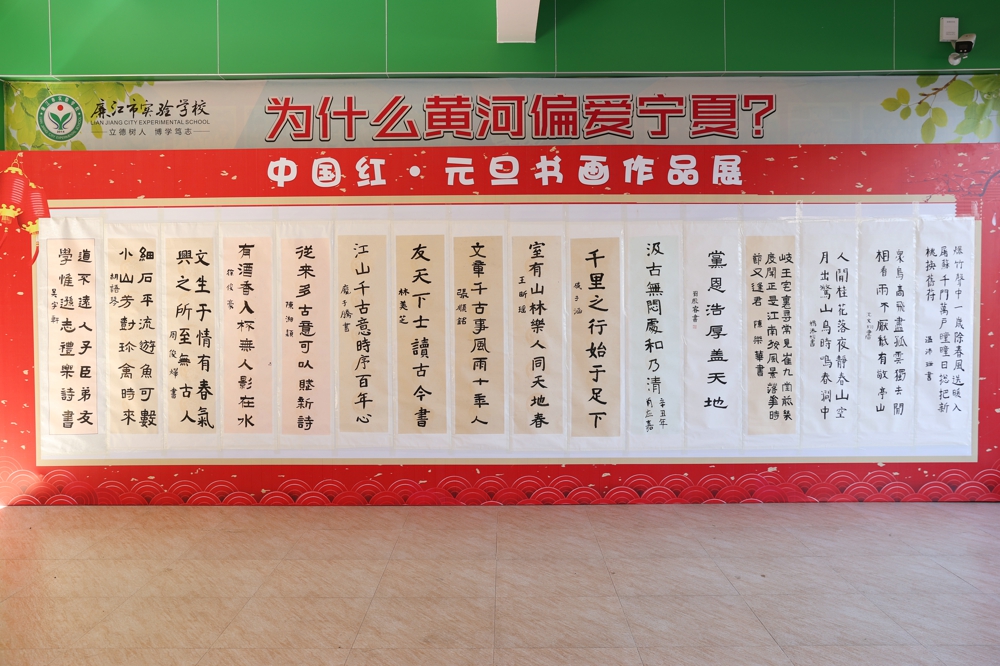 廉江市实验学校
LIAN JIANG CITY EXPERIMENTAL SCHOOL
立德树人 博学笃志
为什么黄河偏爱宁夏?
中国红·元旦书画作品展
爆竹聲中一歲除春風送暖入
屠蘇千門萬戶曈曈日總把新
桃換舊符
眾鳥高飛盡孤雲獨去閒
相看兩不厭只有敬亭山
人閒桂花落夜靜春山空
月出驚山鳥時鳴春澗中
岐王宅裏尋常見崔九堂前幾
度聞正是江南好風景落花時
節又逢君 陳榮華書
黨恩浩厚蓋天地
汲古無悶處和乃清
辛丑年
千里之行始于足下
室有山林樂人同天地春
王昕瑶
文章千古事風雨十年人
張順銘
友天下士讀古今書
林美芝
江山千古意時序百年心
從來多古意可以賦新詩
陳湘穎
有酒香入杯無人影在水
文生于情有春氣
興之所至無古人
周俊燁書
細石平流遊魚可數
小山芳樹珍禽時來
胡語琴
道不遠人子臣弟友
學惟遜志禮樂詩書